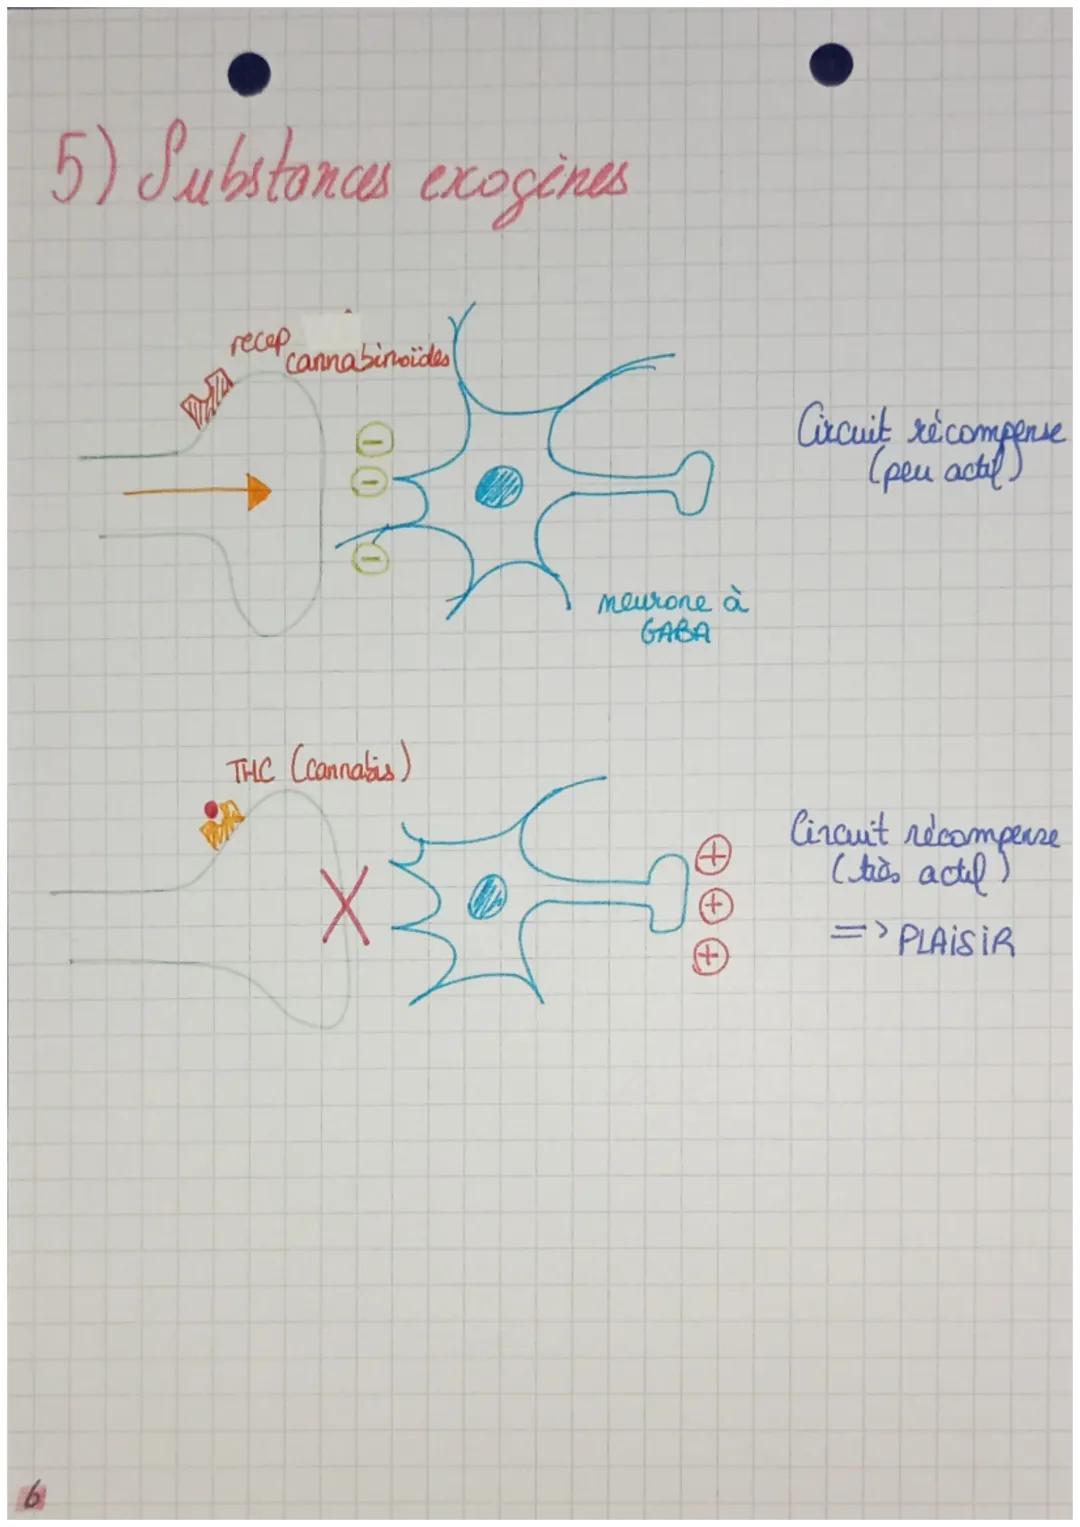 5) Substances exogènes
recep
cannabinoïdes
⊖
⊖
⊖
Circuit récompense
(peu actif)
neurone à
GABA
THC (cannabis)
X
⊕
⊕
⊕
Circuit récompense
(très actif)
=> PLAISIR
6